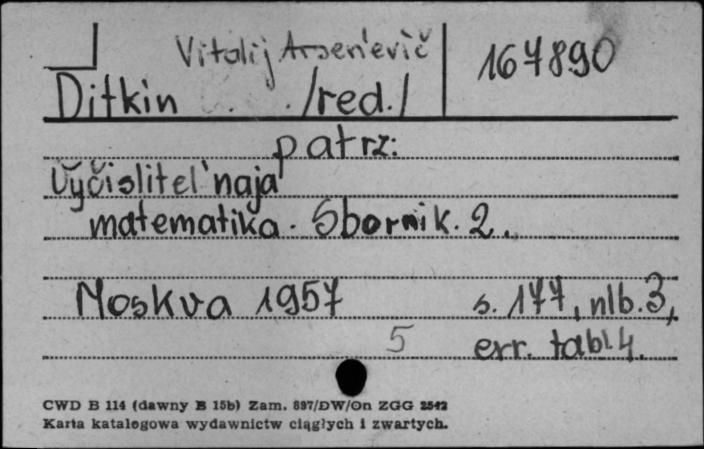 Vitalij Arsen'evič
167890
Ditkin . . /red./
patrz:
Vyčislitel'naja
matematika. Sbornik. 2.
Moskva 1957 s. 177, nlb. 3,
5 err. tabl. 4.
CWD B 114 (dawny B 15b) Zam. 897/DW/On ZGG 2542
Karta katalogowa wydawnictw ciągłych i zwartych.